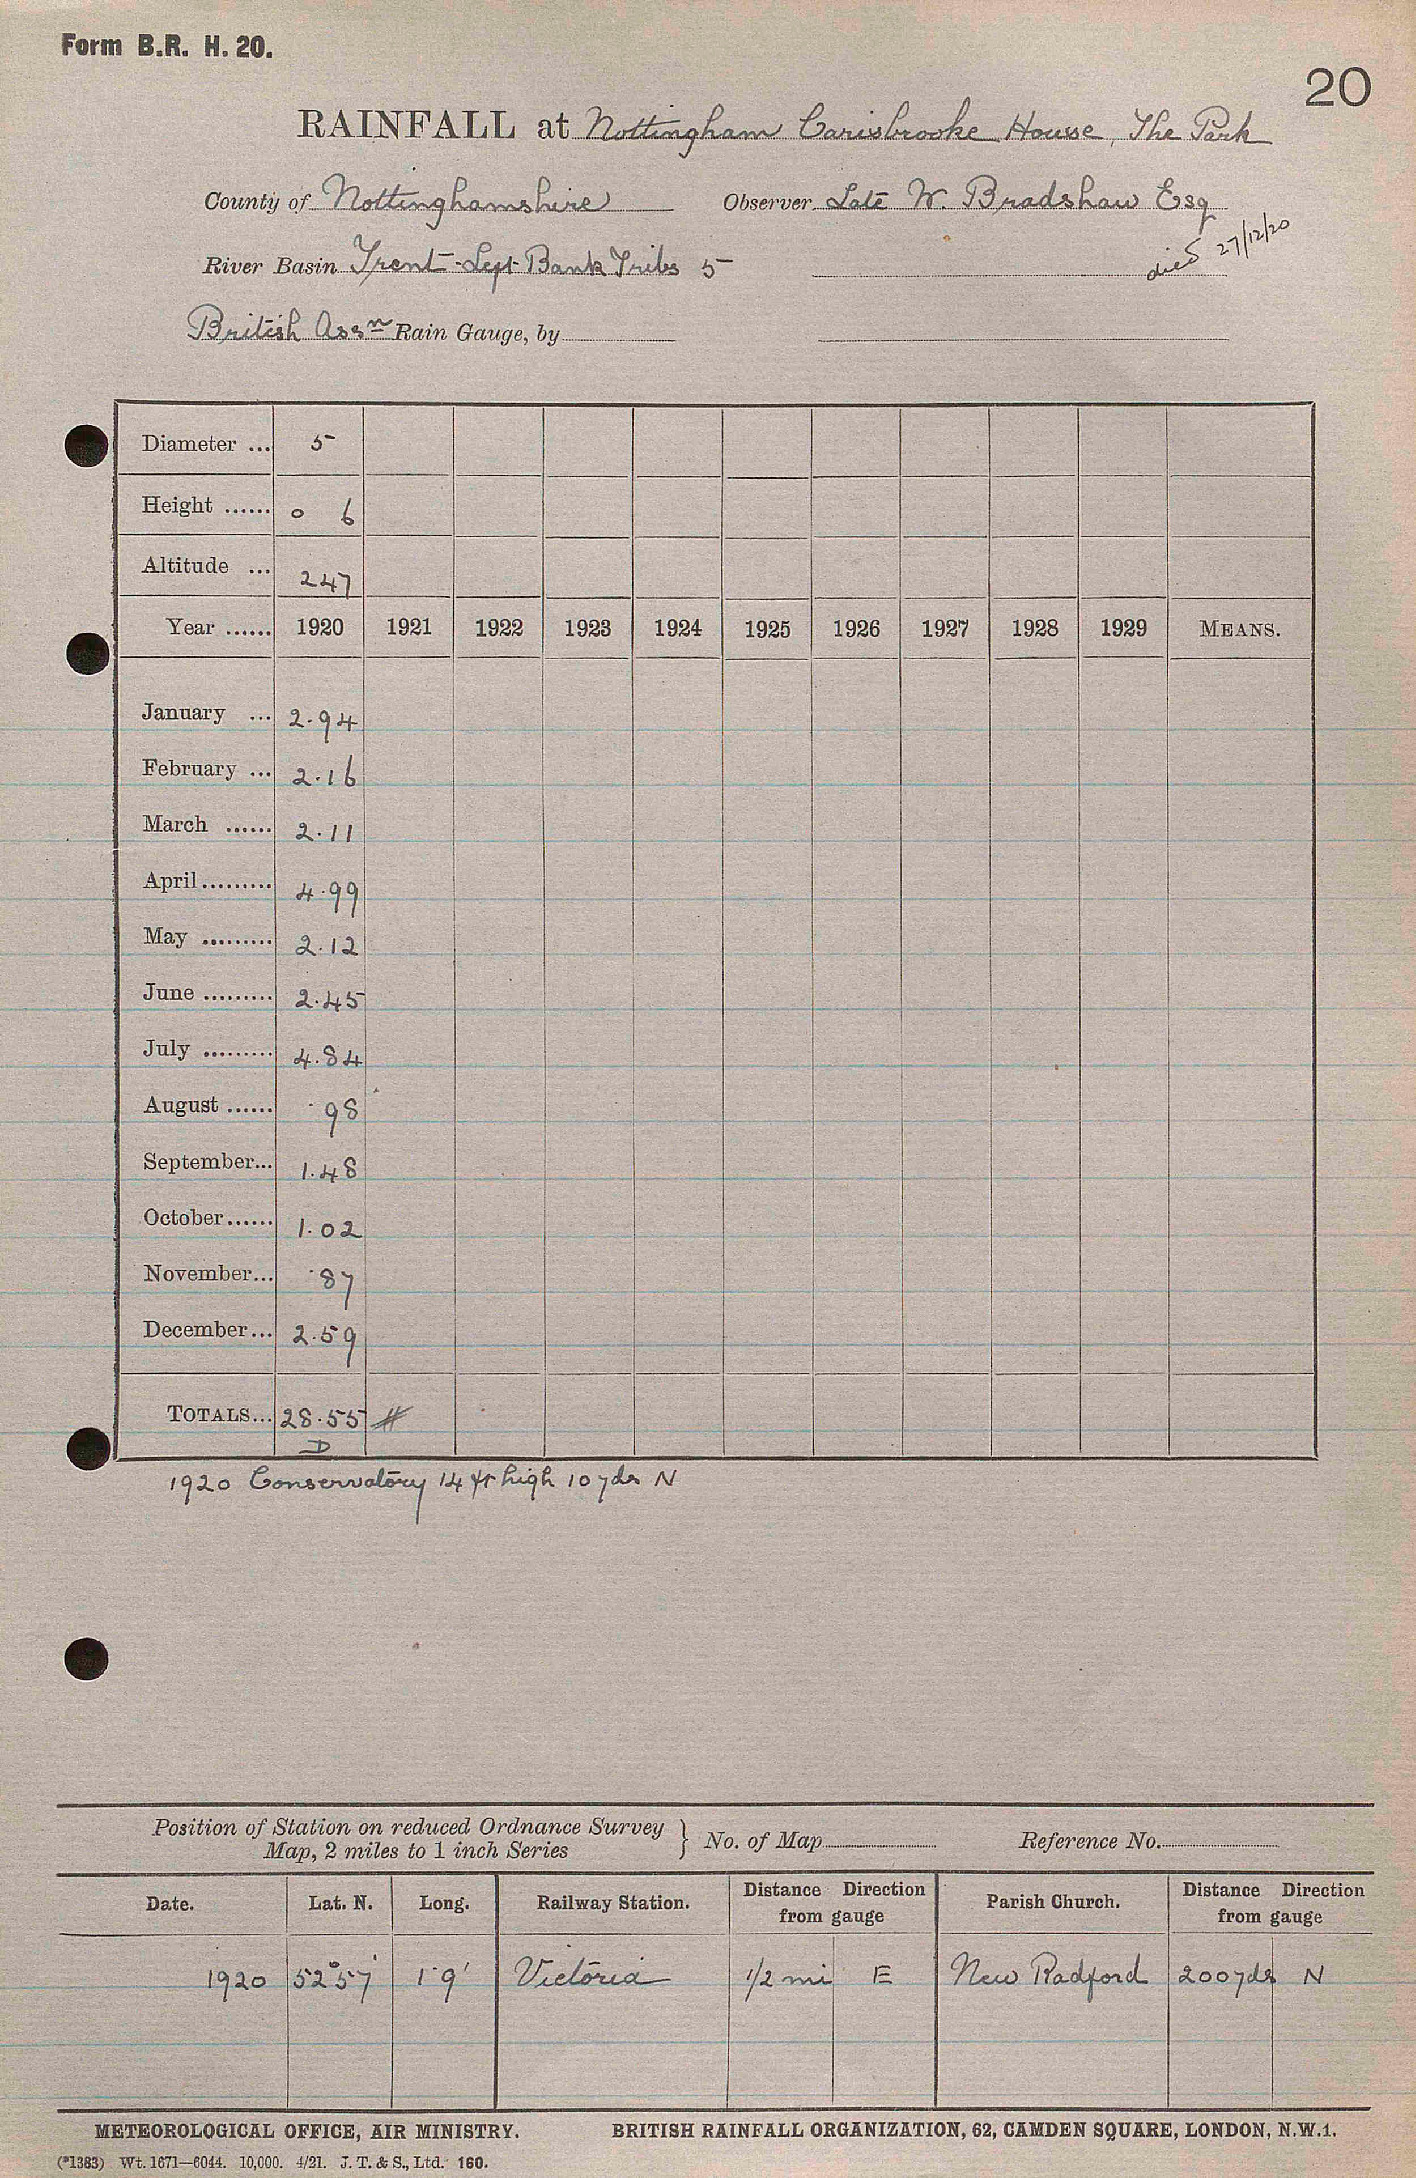 Form B.R. H. 20.
20
RAINFALL at Nottingham Carisbrooke House, The Park
County of Nottinghamshire Observer Late W. Bradshaw Esq
died 27/12/20
River Basin Trent - Left Bank Tribs 5
British Assn Rain Gauge, by
Diameter ... 5
Height ...... 0 6
Altitude ... 247
Year ...... 1920 1921 1922 1923 1924 1925 1926 1927 1928 1929 MEANS.
January ... 2.94
February ... 2.16
March ...... 2.11
April......... 4.99
May ......... 2.12
June ......... 2.45
July ......... 4.84
August ...... .98
September... 1.48
October...... 1.02
November... .87
December... 2.59
TOTALS... 28.55 #
D
1920 Conservatory 14 ft high 10 yds N
Position of Station on reduced Ordnance Survey
Map, 2 miles to 1 inch Series } No. of Map Reference No.
Date. Lat. N. Long. Railway Station. Distance Direction from gauge Parish Church. Distance Direction from gauge
1920 52°57' 1°9' Victoria 1/2 mi E New Radford 200 yds N
METEOROLOGICAL OFFICE, AIR MINISTRY. BRITISH RAINFALL ORGANIZATION, 62, CAMDEN SQUARE, LONDON, N.W.1.
(*1383) Wt. 1671—6044. 10,000. 4/21. J. T. & S., Ltd. 160.